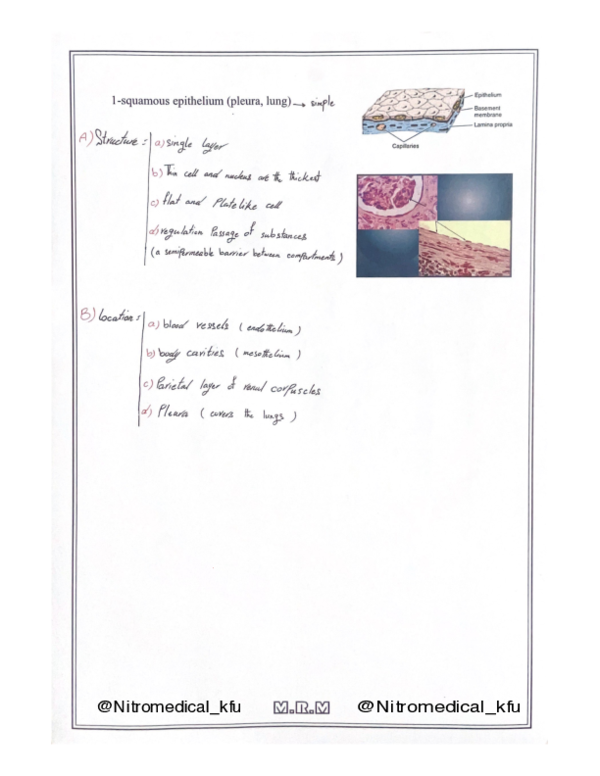 1-squamous epithelium (pleura, lung) → simple
A) Structure :
a) single layer
b) Thin cell and nucleus are the thickest
c) flat and Platelike cell
d) regulation Passage of substances
(a semipermeable barrier between compartments)
Epithelium
Basement
membrane
Lamina propria
Capillaries
B) Location :
a) blood vessels (endothelium)
b) body cavities (mesothelium)
c) Parietal layer of renal corpuscles
d) Pleura (covers the lungs)
@Nitromedical_kfu M.R.M @Nitromedical_kfu